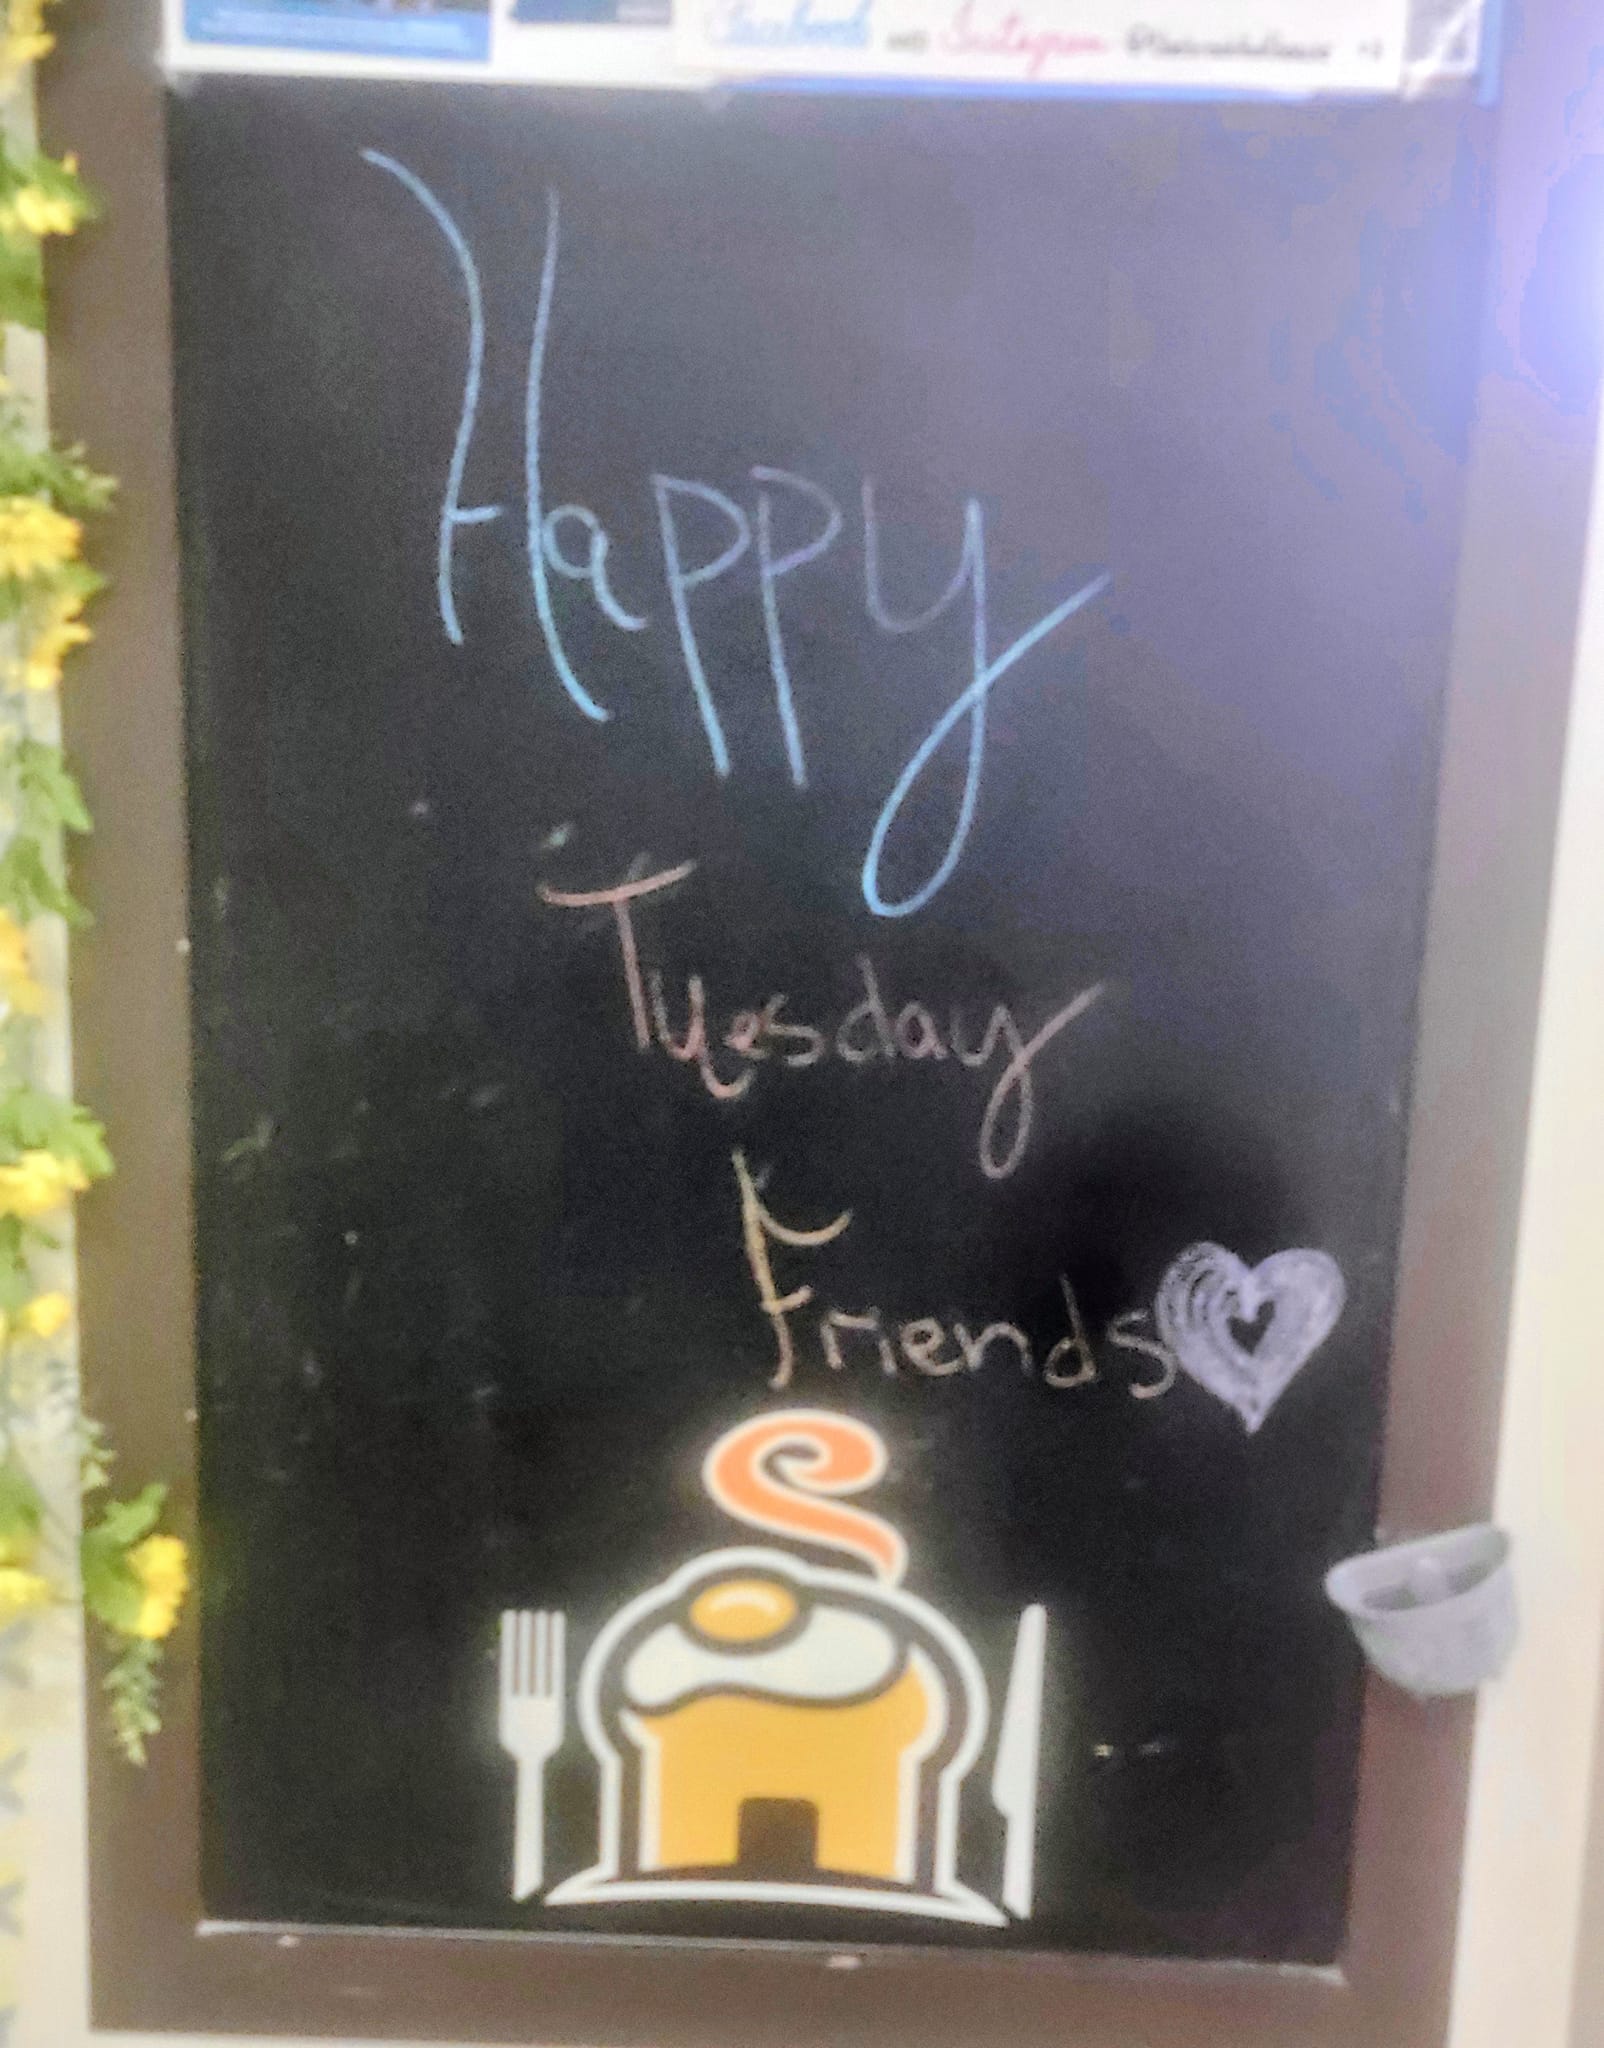 Facebook and Instagram
Happy
Tuesday
Friends